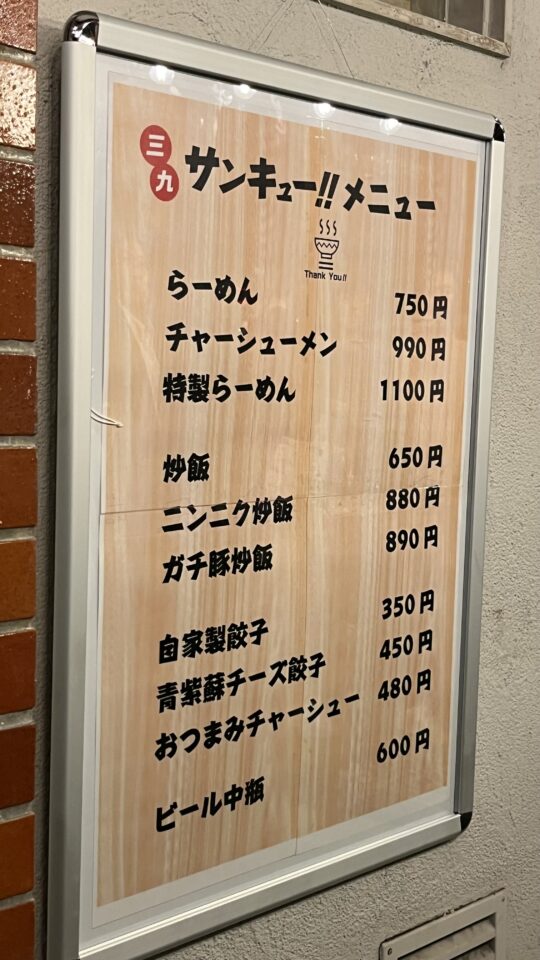 三九 サンキュー!! メニュー
Thank You!!
らーめん 750円
チャーシューメン 990円
特製らーめん 1100円
炒飯 650円
ニンニク炒飯 880円
ガチ豚炒飯 890円
自家製餃子 350円
青紫蘇チーズ餃子 450円
おつまみチャーシュー 480円
ビール中瓶 600円